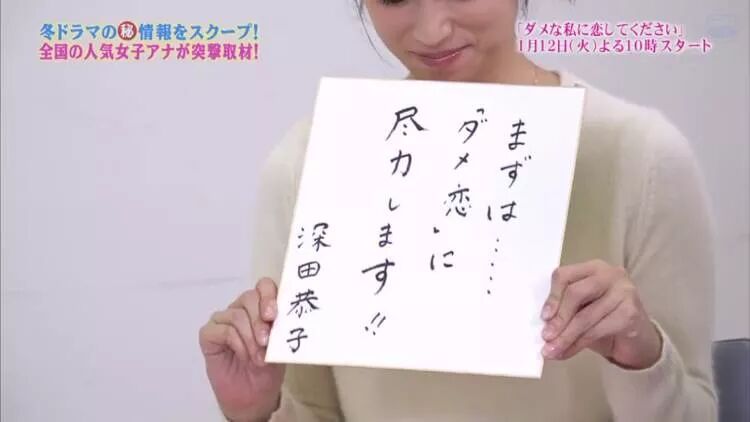 冬ドラマの㊙情報をスクープ!
全国の人気女子アナが突撃取材!
「ダメな私に恋してください」
1月12日(火)よる10時スタート
まずは……
「ダメ恋」に
尽力します!!
深田恭子